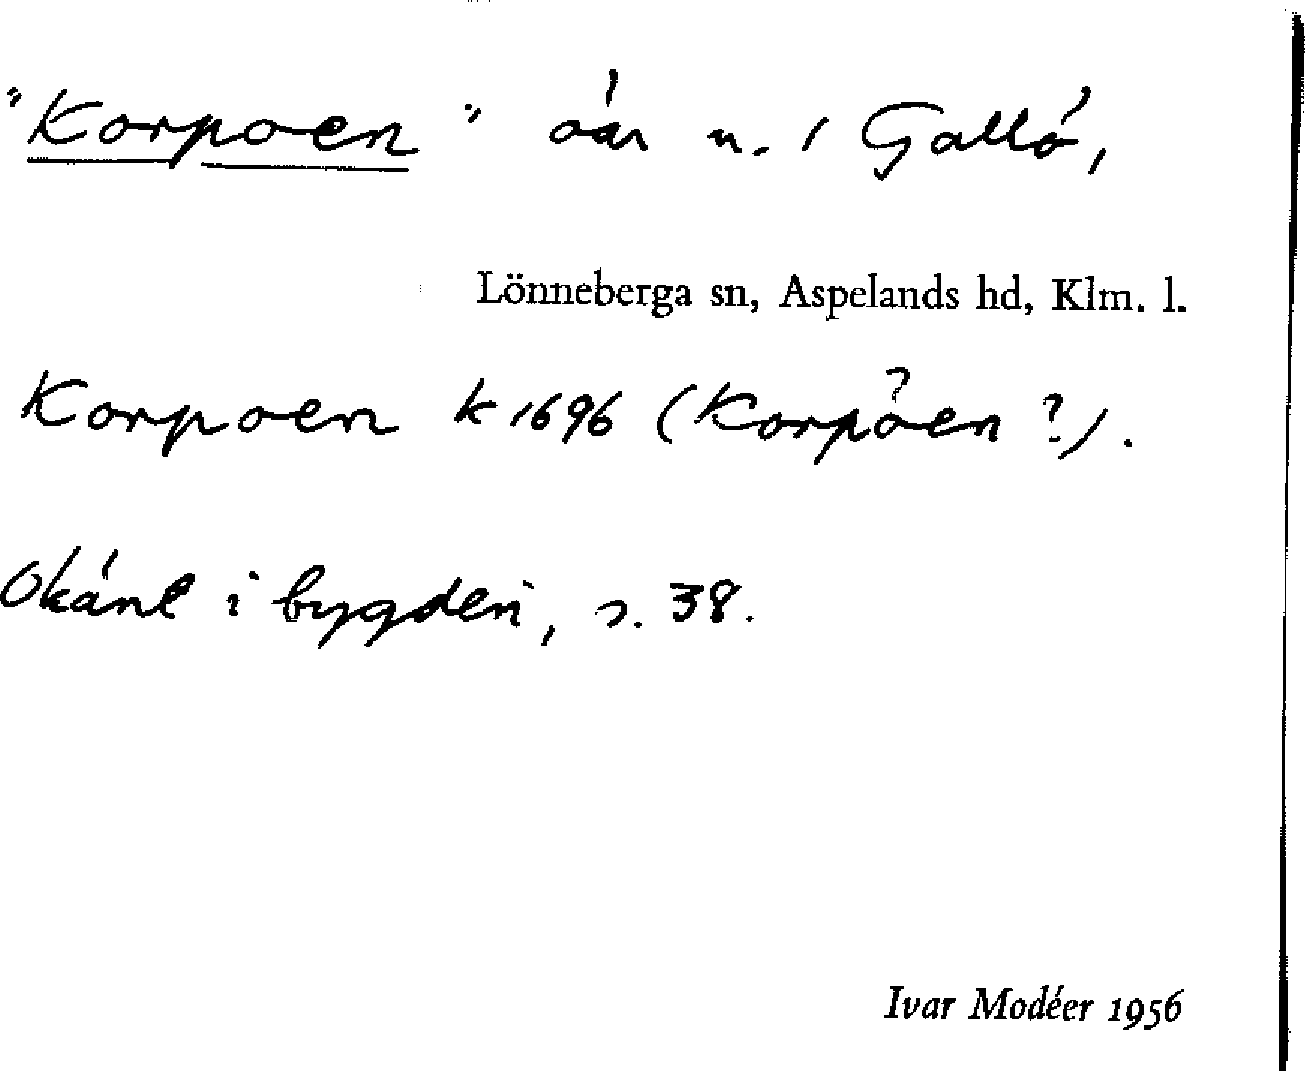 "Korpoen" oár n. i Galló,
Lönneberga sn, Aspelands hd, Klm. l.
Korpoen k 1696 (Korpåen?).
Okánt i bygden, s. 38.
Ivar Modéer 1956